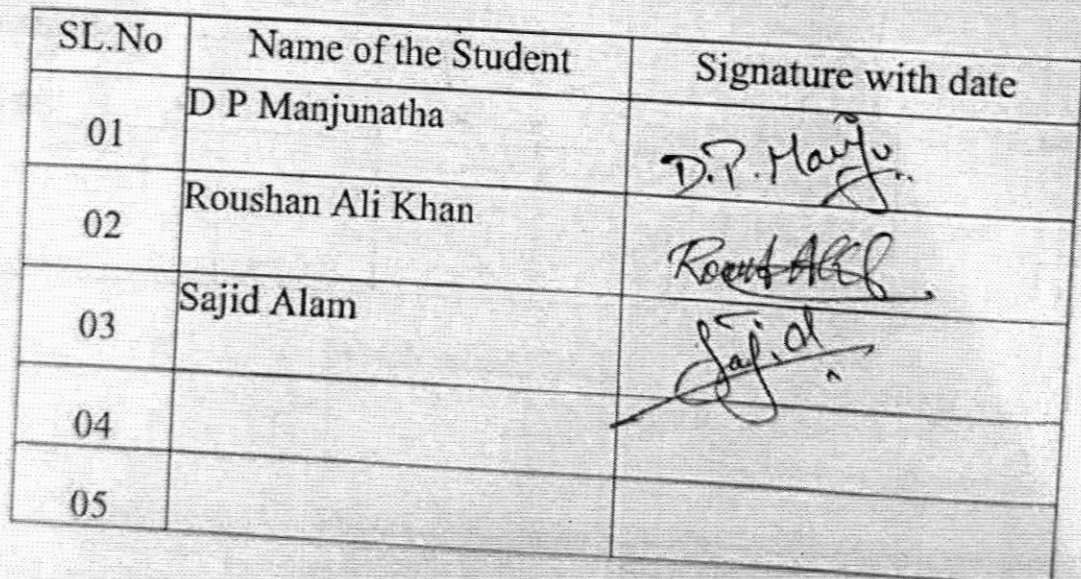 SL.No Name of the Student Signature with date
01 D P Manjunatha D.P. Manju..
02 Roushan Ali Khan
03 Sajid Alam Sajid
04
05